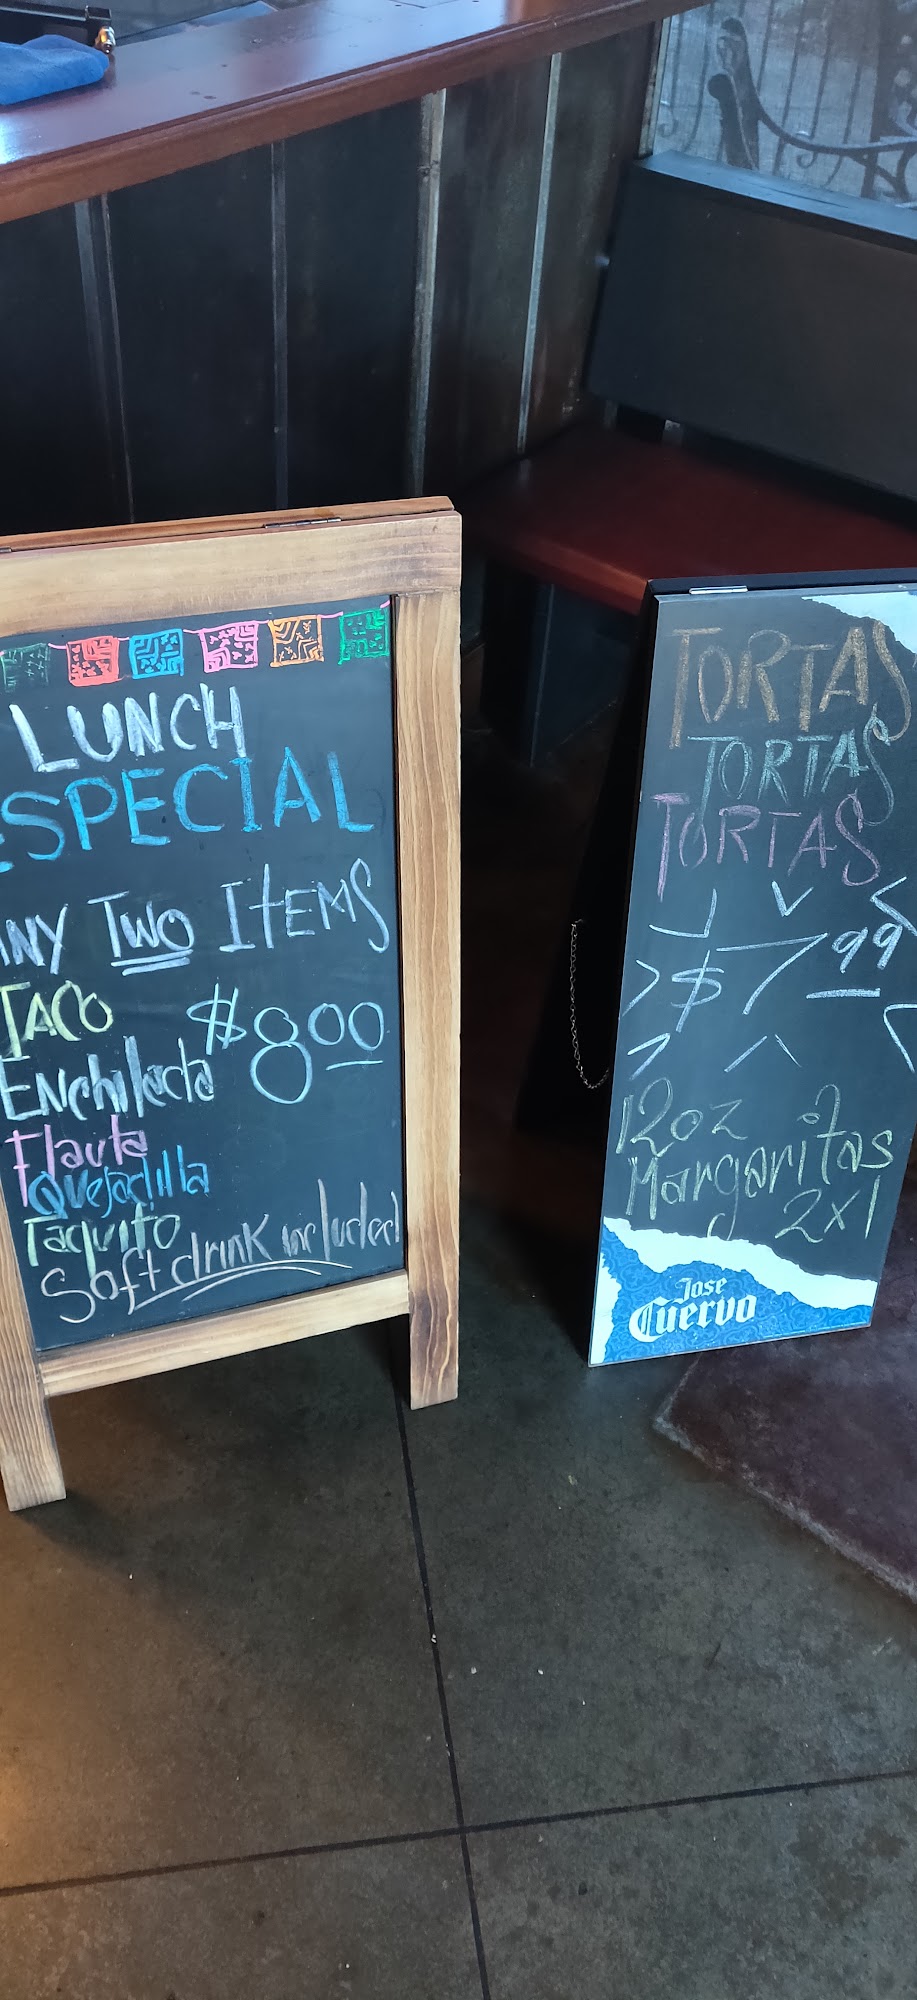 LUNCH
ESPECIAL
ANY TWO ITEMS
TACO
$8.00
Enchilada
Flauta
Quejadilla
Taquito
Soft drink included
TORTAS
TORTAS
TORTAS
$7.99
12oz
Margaritas
2x1
Jose
Cuervo